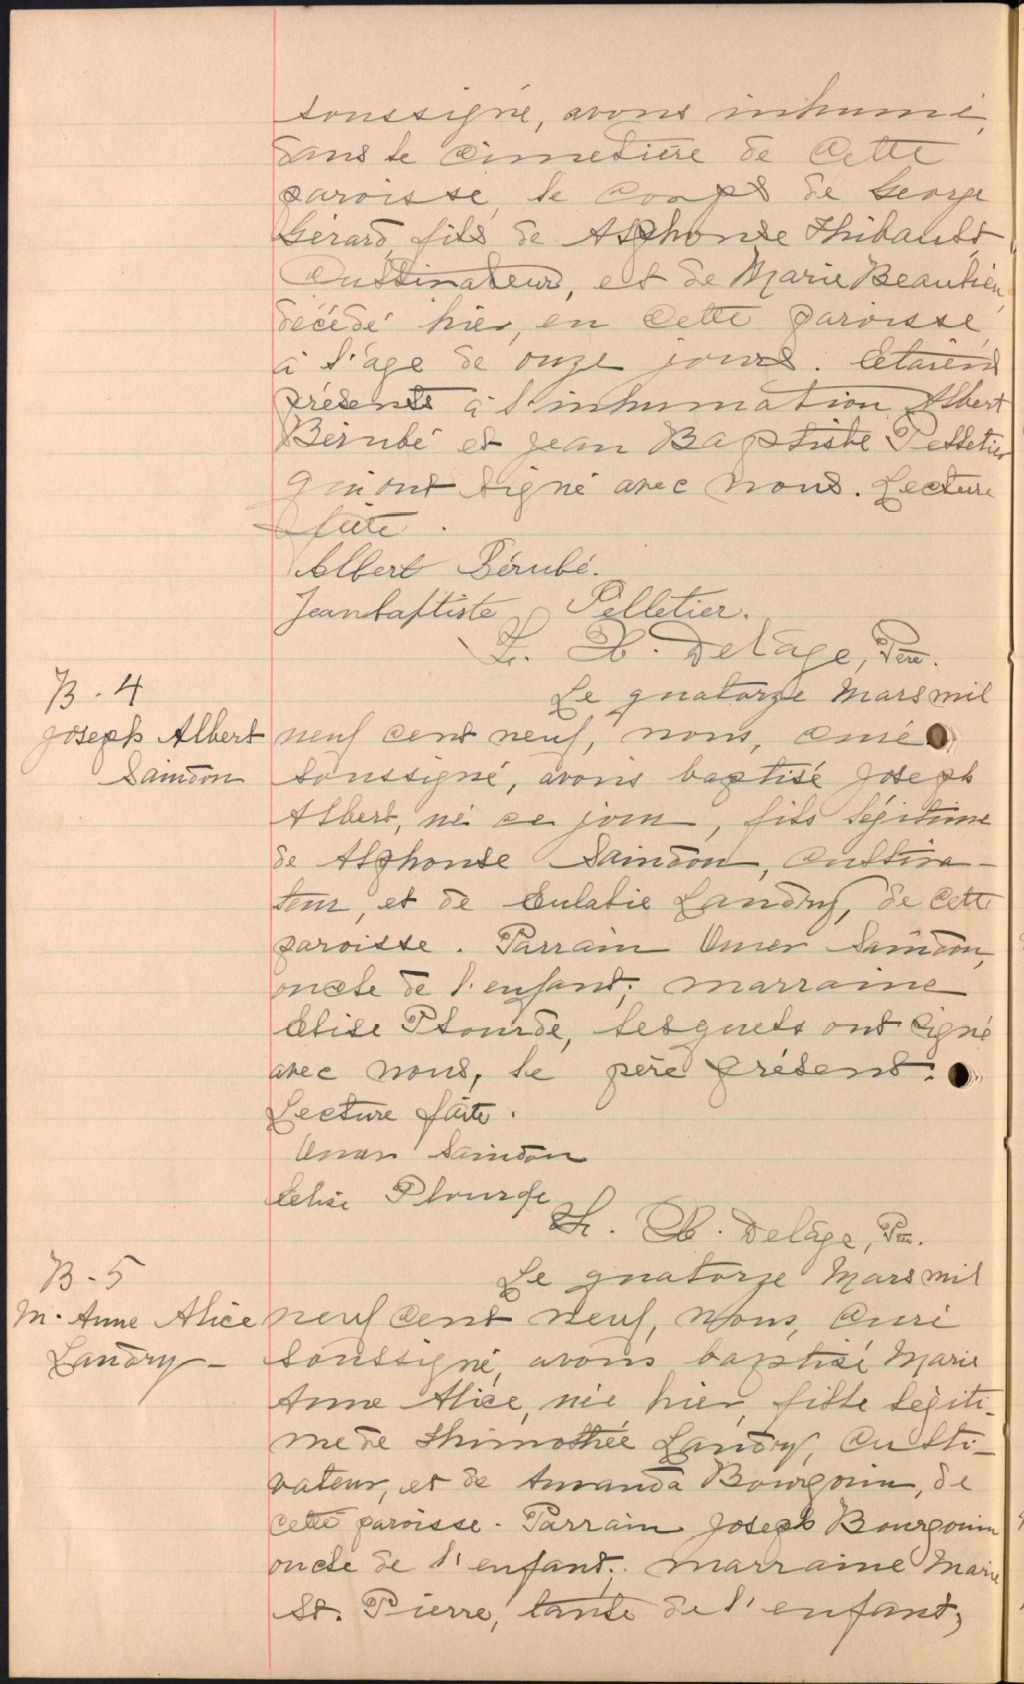 soussigné, avons inhumé,
dans le cimetière de cette
paroisse, le corps de George
Gérard, fils de Alphonse Thibault,
Cultivateur, et de Marie Beaulieu,
décédé hier, en cette paroisse,
à l'âge de onze jours. Etaient
présents à l'inhumation Albert
Bérubé et Jean Baptiste Pelletier
qui ont signé avec nous. Lecture
faite.
Albert Bérubé.
Jeanbaptiste Pelletier.
X. Delâge, Ptre.
B. 4
Le quatorze Mars mil
Joseph Albert neuf cent neuf, nous, curé
Saindon soussigné, avons baptisé Joseph
Albert, né ce jour, fils légitime
de Alphonse Saindon, cultiva-
teur, et de Eulalie Landry, de cette
paroisse. Parrain Omer Saindon,
oncle de l'enfant; marraine
Elise Plourde, lesquels ont signé
avec nous, le père présent.
Lecture faite.
Omer Saindon
Elise Plourde
X. Delâge, Ptre.
B. 5
Le quatorze Mars mil
M. Anne Alice neuf cent neuf, Nous, Curé
Landry soussigné, avons baptisé Marie
Anne Alice, née hier, fille légiti-
me de Thimothée Landry, Culti-
vateur, et de Amanda Bourgoin, de
cette paroisse. Parrain Joseph Bourgoin
oncle de l'enfant; marraine Marie
St. Pierre, tante de l'enfant,